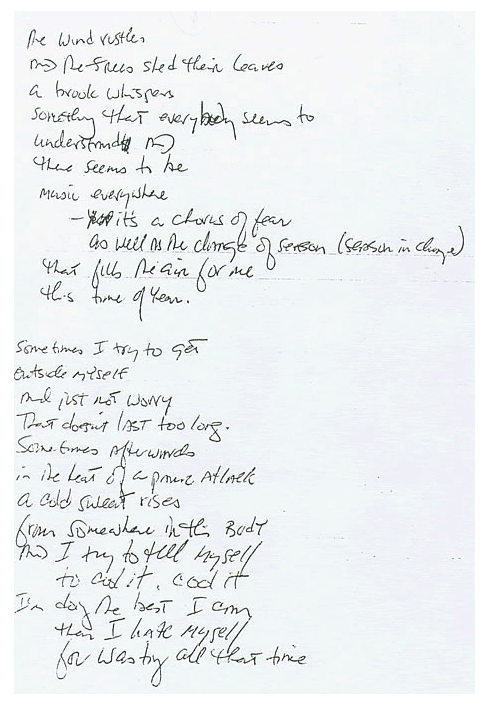 The wind rustles
and the trees shed their leaves
a brook whispers
something that everybody seems to
understand and
there seems to be
music everywhere
- it's a chorus of fear
as well as the change of season (season in change)
that fills the air for me
this time of year.
Sometimes I try to get
outside myself
and just not worry
That doesn't last too long.
Sometimes afterwards
in the heat of a panic attack
a cold sweat rises
from somewhere in this Body
and I try to tell myself
to cool it, cool it
I'm doing the best I can
then I hate myself
for wasting all that time